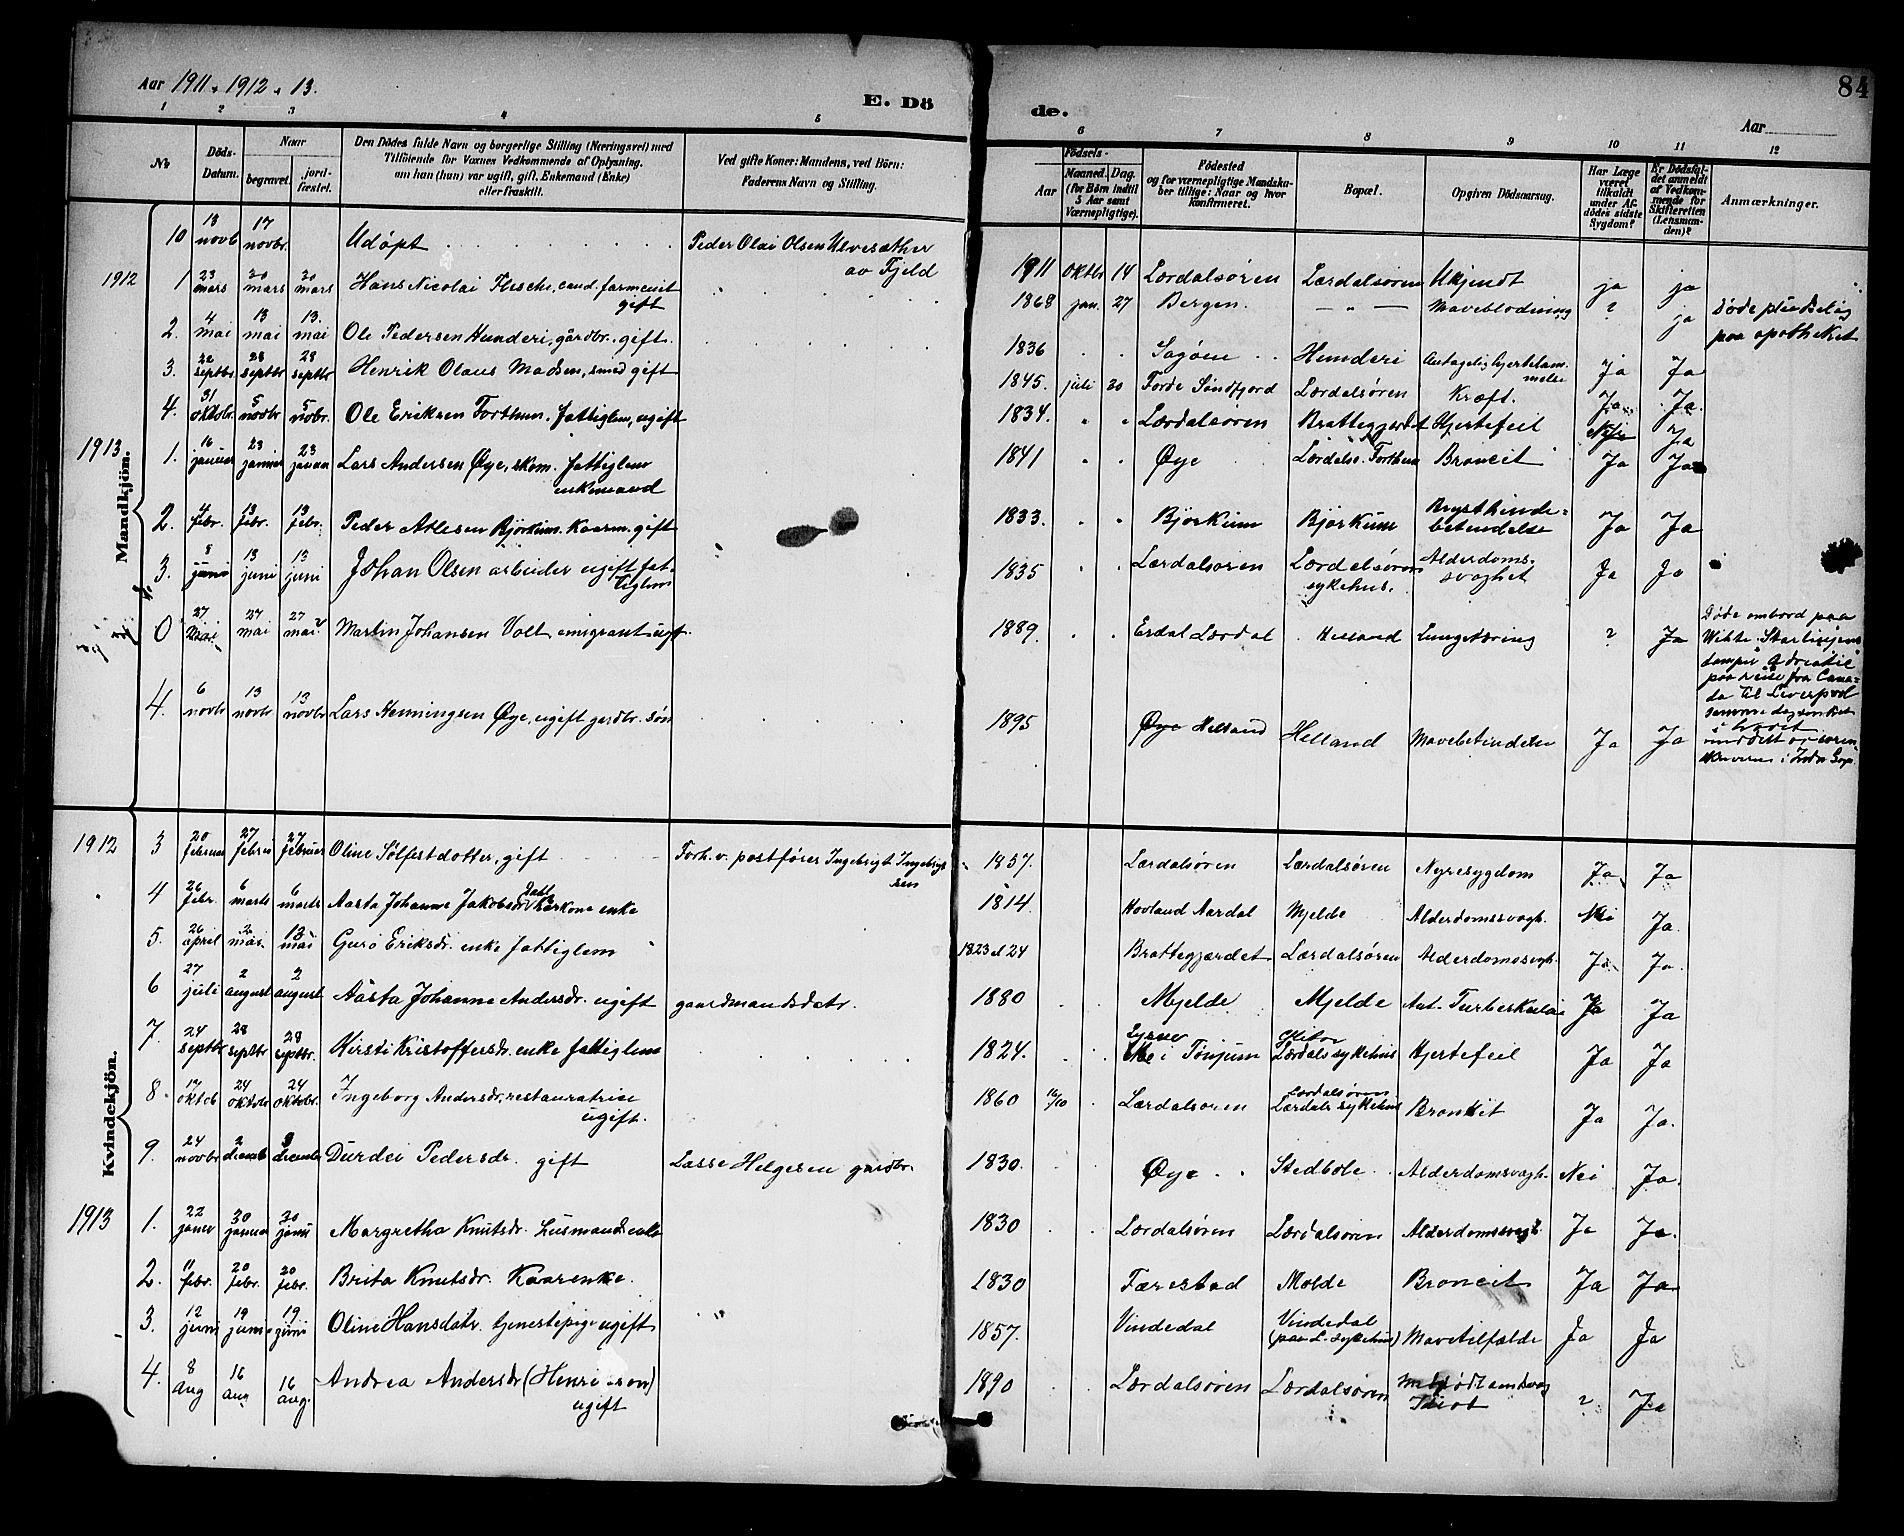 Aar 1911, 1912, 13.
E. Dö
de.
Aar
84
1 2 3 4 5 6 7 8 9 10 11 12
No
Döds-Datum.
Naar
begravet.
jordfæstet.
Den Dödes fulde Navn og borgerlige Stilling (Næringsvei) med
Tilföiende for Voxnes Vedkommende af Oplysning,
om han (hun) var ugift, gift, Enkemand (Enke)
eller fraskilt.
Ved gifte Koner: Mandens, ved Börn:
Faderens Navn og Stilling.
Födsels-
Aar
Maaned. Dag.
(for Börn indtil
5 Aar samt
Værnepligtige).
Födested
og for værnepligtige Mandska-
ber tillige: Naar og hvor
konfirmeret.
Bopæl.
Opgiven Dödsaarsag.
Har Læge
været
tilkaldt
under Af-
dödes sidste
Sygdom?
Er Dödsfal-
det anmeldt
af Vedkom-
mende for
Skifteretten
(Lensman-
den)?
Anmærkninger.
Mandkjön.
10 13 novb 17 novbr. Udöpt Peder Olai Olsen Ulvesæther av Fjeld 1911 oktbr 14 Lærdalsören Lærdalsören Ukjendt ja ja
1912 1 23 mars 20 mars 20 mars Hans Nicolai Flesche, cand. farmecuit gift 1868 jan. 27 Bergen. — Maveblödning ? ja Döde pludselig paa apotheket
2. 4 mai 13 mai 13. mai Ole Pedersen Hunderi, gårdbr. gift. 1836 Hunderi Antagelig hjertelammelse Ja Ja
3. 22 septbr 28 septbr 28 septbr Henrik Olaus Madsen, smed gift 1845. juli 20 Förde Söndfjord Lærdalsören Kræft. Ja Ja.
4. 31 oktobr. 5 novbr 5 novbr. Ole Eriksen Forthun. fattiglem, ugift 1834. Lærdalsören Brattegjerdet Hjertefeil Nei Ja
1913 1. 16 januar 23 januar 23 januar Lars Andersen Øye, skom. fattiglem enkemand 1841 Øye Lærdalsö. Forthun Broncit Ja Ja
2. 4 febr. 13 febr. 13 febr. Peder Atlesen Björkum. Kaarm. gift 1833. Björkum Björkum Brysthinde-betendelse Ja Ja
3. 8 juni 13 juni 13 juni Johan Olsen arbeider ugift fattiglem 1835 Lærdalsören Lærdalsören sykehus. Alderdoms-svaghet Ja Ja
0 27 mai 27 mai 27 mai Martin Johansen Volt emigrant ugft 1889. Erdal Lærdal Helland Lungetæring ? Ja Döde ombord paa White Starlinjens damper "Adriatic" paa reise fra Canada til Liverpool samme dag senket i havet
4. 6 novbr 13 novbr 13 novbr Lars Henningsen Øye, ugift gardbr. sön 1895 Øye Helland Helland Mavebetændelse Ja Ja
Kvindekjön.
1912 3 20 februar 27 februar 27 februar Oline Sölfestdotter, gift Forh. v. postförer Ingebrigt Ingebrigtsen 1857. Lærdalsören Lærdalsören Nyresygdom Ja Ja
4 26 febr. 6 marts 6 marts Aasta Johanne Jakobsdr. Kårkone enke 1814 Hovland Aardal Mjelde Alderdomssvagh. Nei Ja.
5. 26 april 2 mai. 13 mai Guro Eriksdr. enke fattiglem 1823 el 24 Brattegjærdet Lærdalsören Alderdomssvagh. Ja Ja.
6 27 juli 2 august 2 august Aasta Johanne Andersdr. ugift gaardmandsdatr. 1880 Mjelde Mjelde Ant. Turberkulose Ja Ja
7. 24 septbr 28 septbr 28 septbr. Kirsti Kristoffersdr. enke fattiglem 1824. i Tönjum Lærdals sykehus Hjertefeil Ja Ja
8. 17 oktob 24 oktobr 24 oktobr. Ingeborg Andersdr. restauratrise ugift. 1860 Lærdalsören Lærdalsören Lærdals sykehus Bronkit Ja Ja.
9. 24 novbr 2 decemb 3 december Durdei Pedersdr. gift Lasse Helgesen gardbr. 1830. Øye Stedbole Alderdomsvagh. Nei Ja.
1913 1. 22 januar 30 januar 30 januar Margretha Knutsdr. husmandsenke 1830 Lærdalsören Lærdalsören Alderdomssvagh. Ja Ja.
2. 11 febr. 20 febr. 20 febr. Brita Knutsdr. Kaarenke. 1830 Færestad Molde Broncit Ja Ja.
3. 12 juni 19 juni 19 juni Oline Hansdatr. tjenestepige ugift 1857. Vindedal Vindedal (paa L. sykehus) Mavetilfælde Ja Ja
4. 8 aug 16 aug 16 aug. Andrea Andersdr (Henrikson) ugift 1890 Lærdalsören Lærdalsören Idiot ? Ja